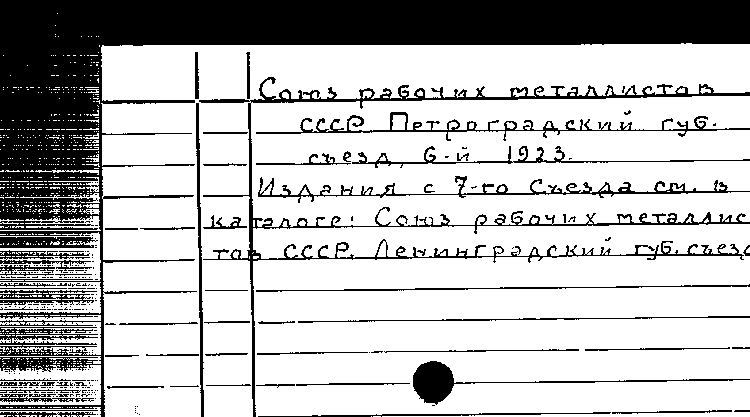 Союз рабочих металлистов
СССР Петроградский губ.
съезд, 6-й 1923.
Издания с 7-го Съезда см. в
каталоге: Союз рабочих металлис
тов СССР. Ленинградский губ. съезд